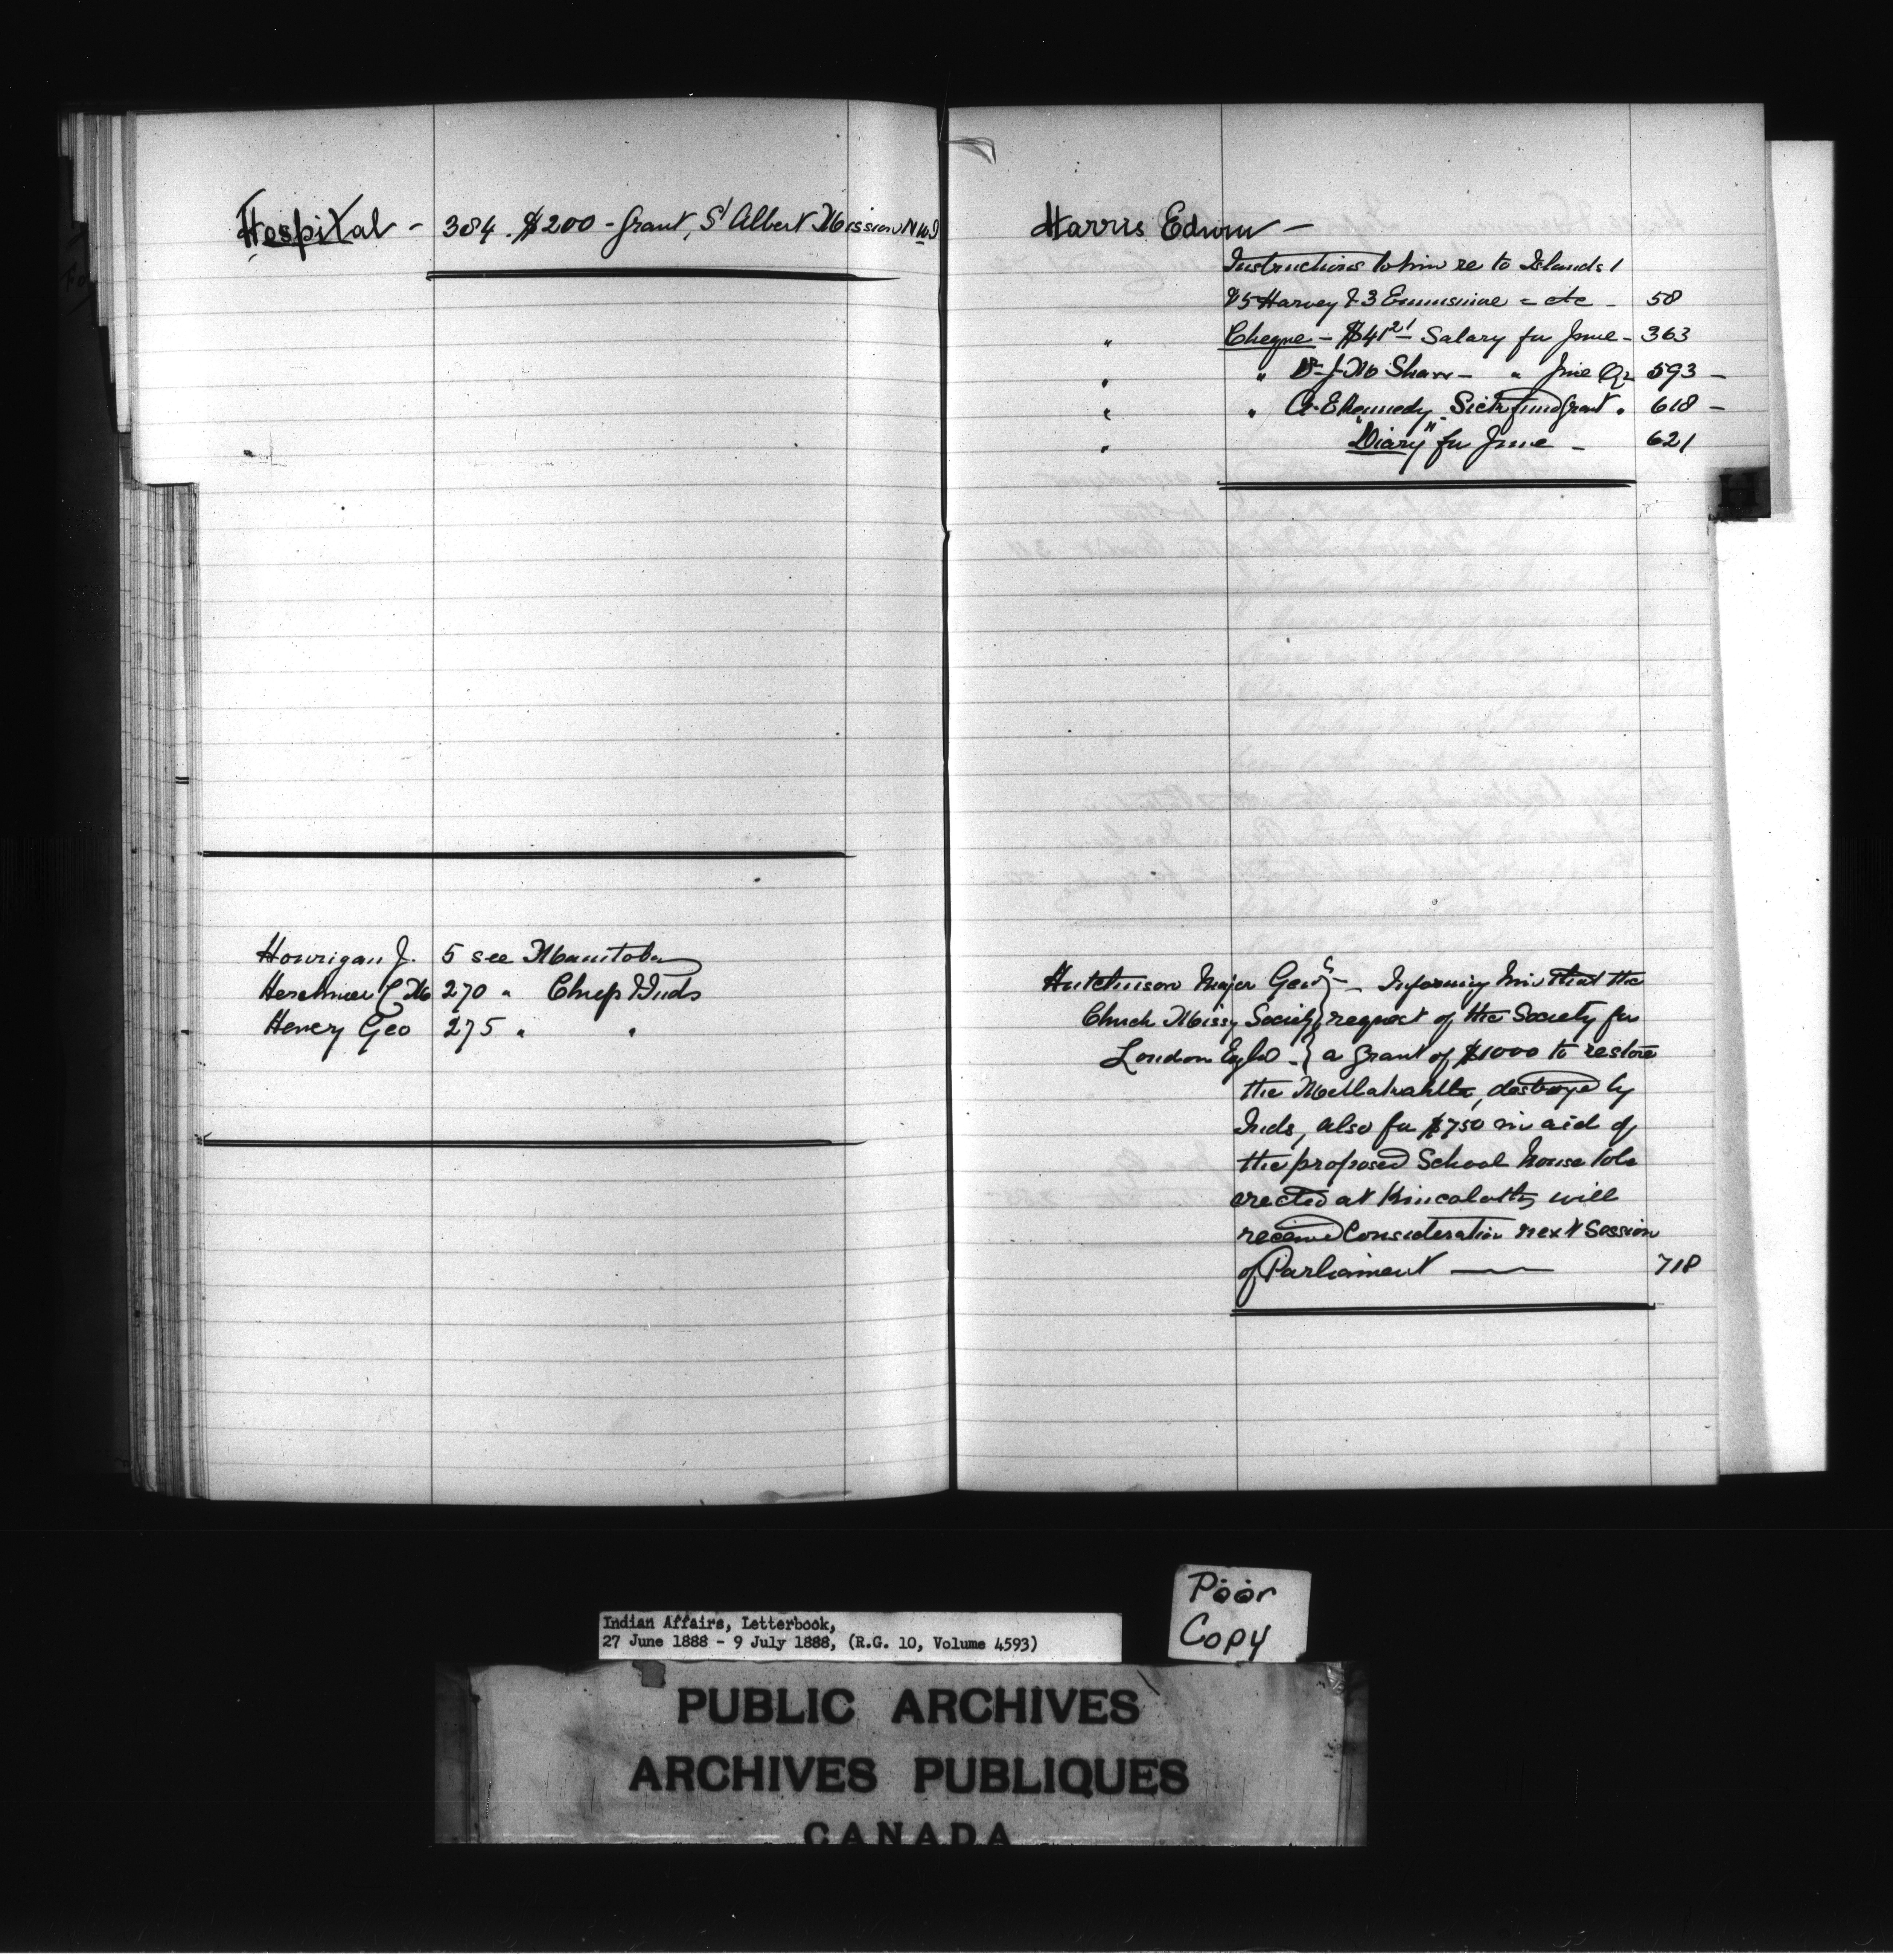 Hospital - 384. $200 - Grant, St Albert Mission N W T
Hourigan J. 5 see Manitoba
Herchmer L W 270 " Chips Inds
Henry Geo 275 " "
Harris Edwin -
Instructions to him re to Islands 1
& 3 - etc - 58
" Cheque - $41 21 Salary for June - 363
" " Dr J Mc Shaw - " June Qr 593 -
" " G. E Kennedy. Sick fund Grant " 618 -
" "Diary" for June - 621
H
Hutchinson Major Genl } - Informing him that the
Church Missy Society } request of the Society for
London Egld - } a grant of $1000 to restore
the Metlakahtla, destroyed by
Inds, also for $750 in aid of
the proposed School house to be
erected at Kincolath, will
receive Consideration next Session
of Parliament — 718
Poor
Copy
Indian Affairs, Letterbook,
27 June 1888 - 9 July 1888, (R.G. 10, Volume 4593)
PUBLIC ARCHIVES
ARCHIVES PUBLIQUES
CANADA